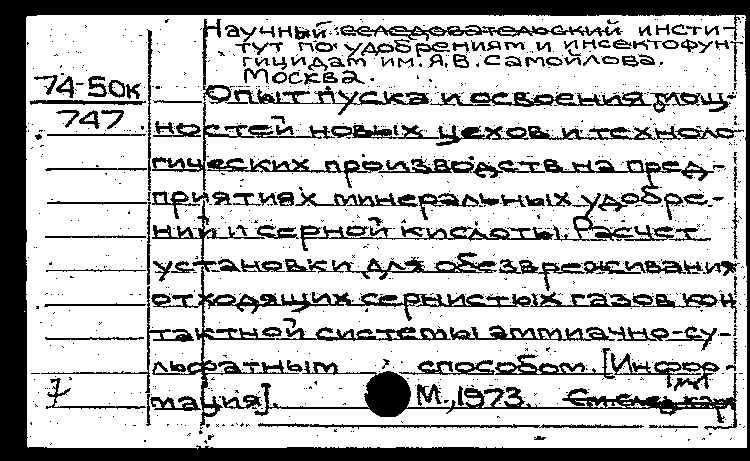 Научный исследовательский инсти-
тут по удобрениям и инсектофун-
гицидам им. Я.В. Самойлова.
Москва.
74-50к
747
Опыт пуска и освоения мощ-
ностей новых цехов и техноло-
гических производств на пред-
приятиях минеральных удобре-
ний и серной кислоты. Расчет
установки для обезвреживания
отходящих сернистых газов кон
тактной системы аммиачно-су-
льфатным способом. [Инфор-
мация].
М., 1973.
См. след. карт
7